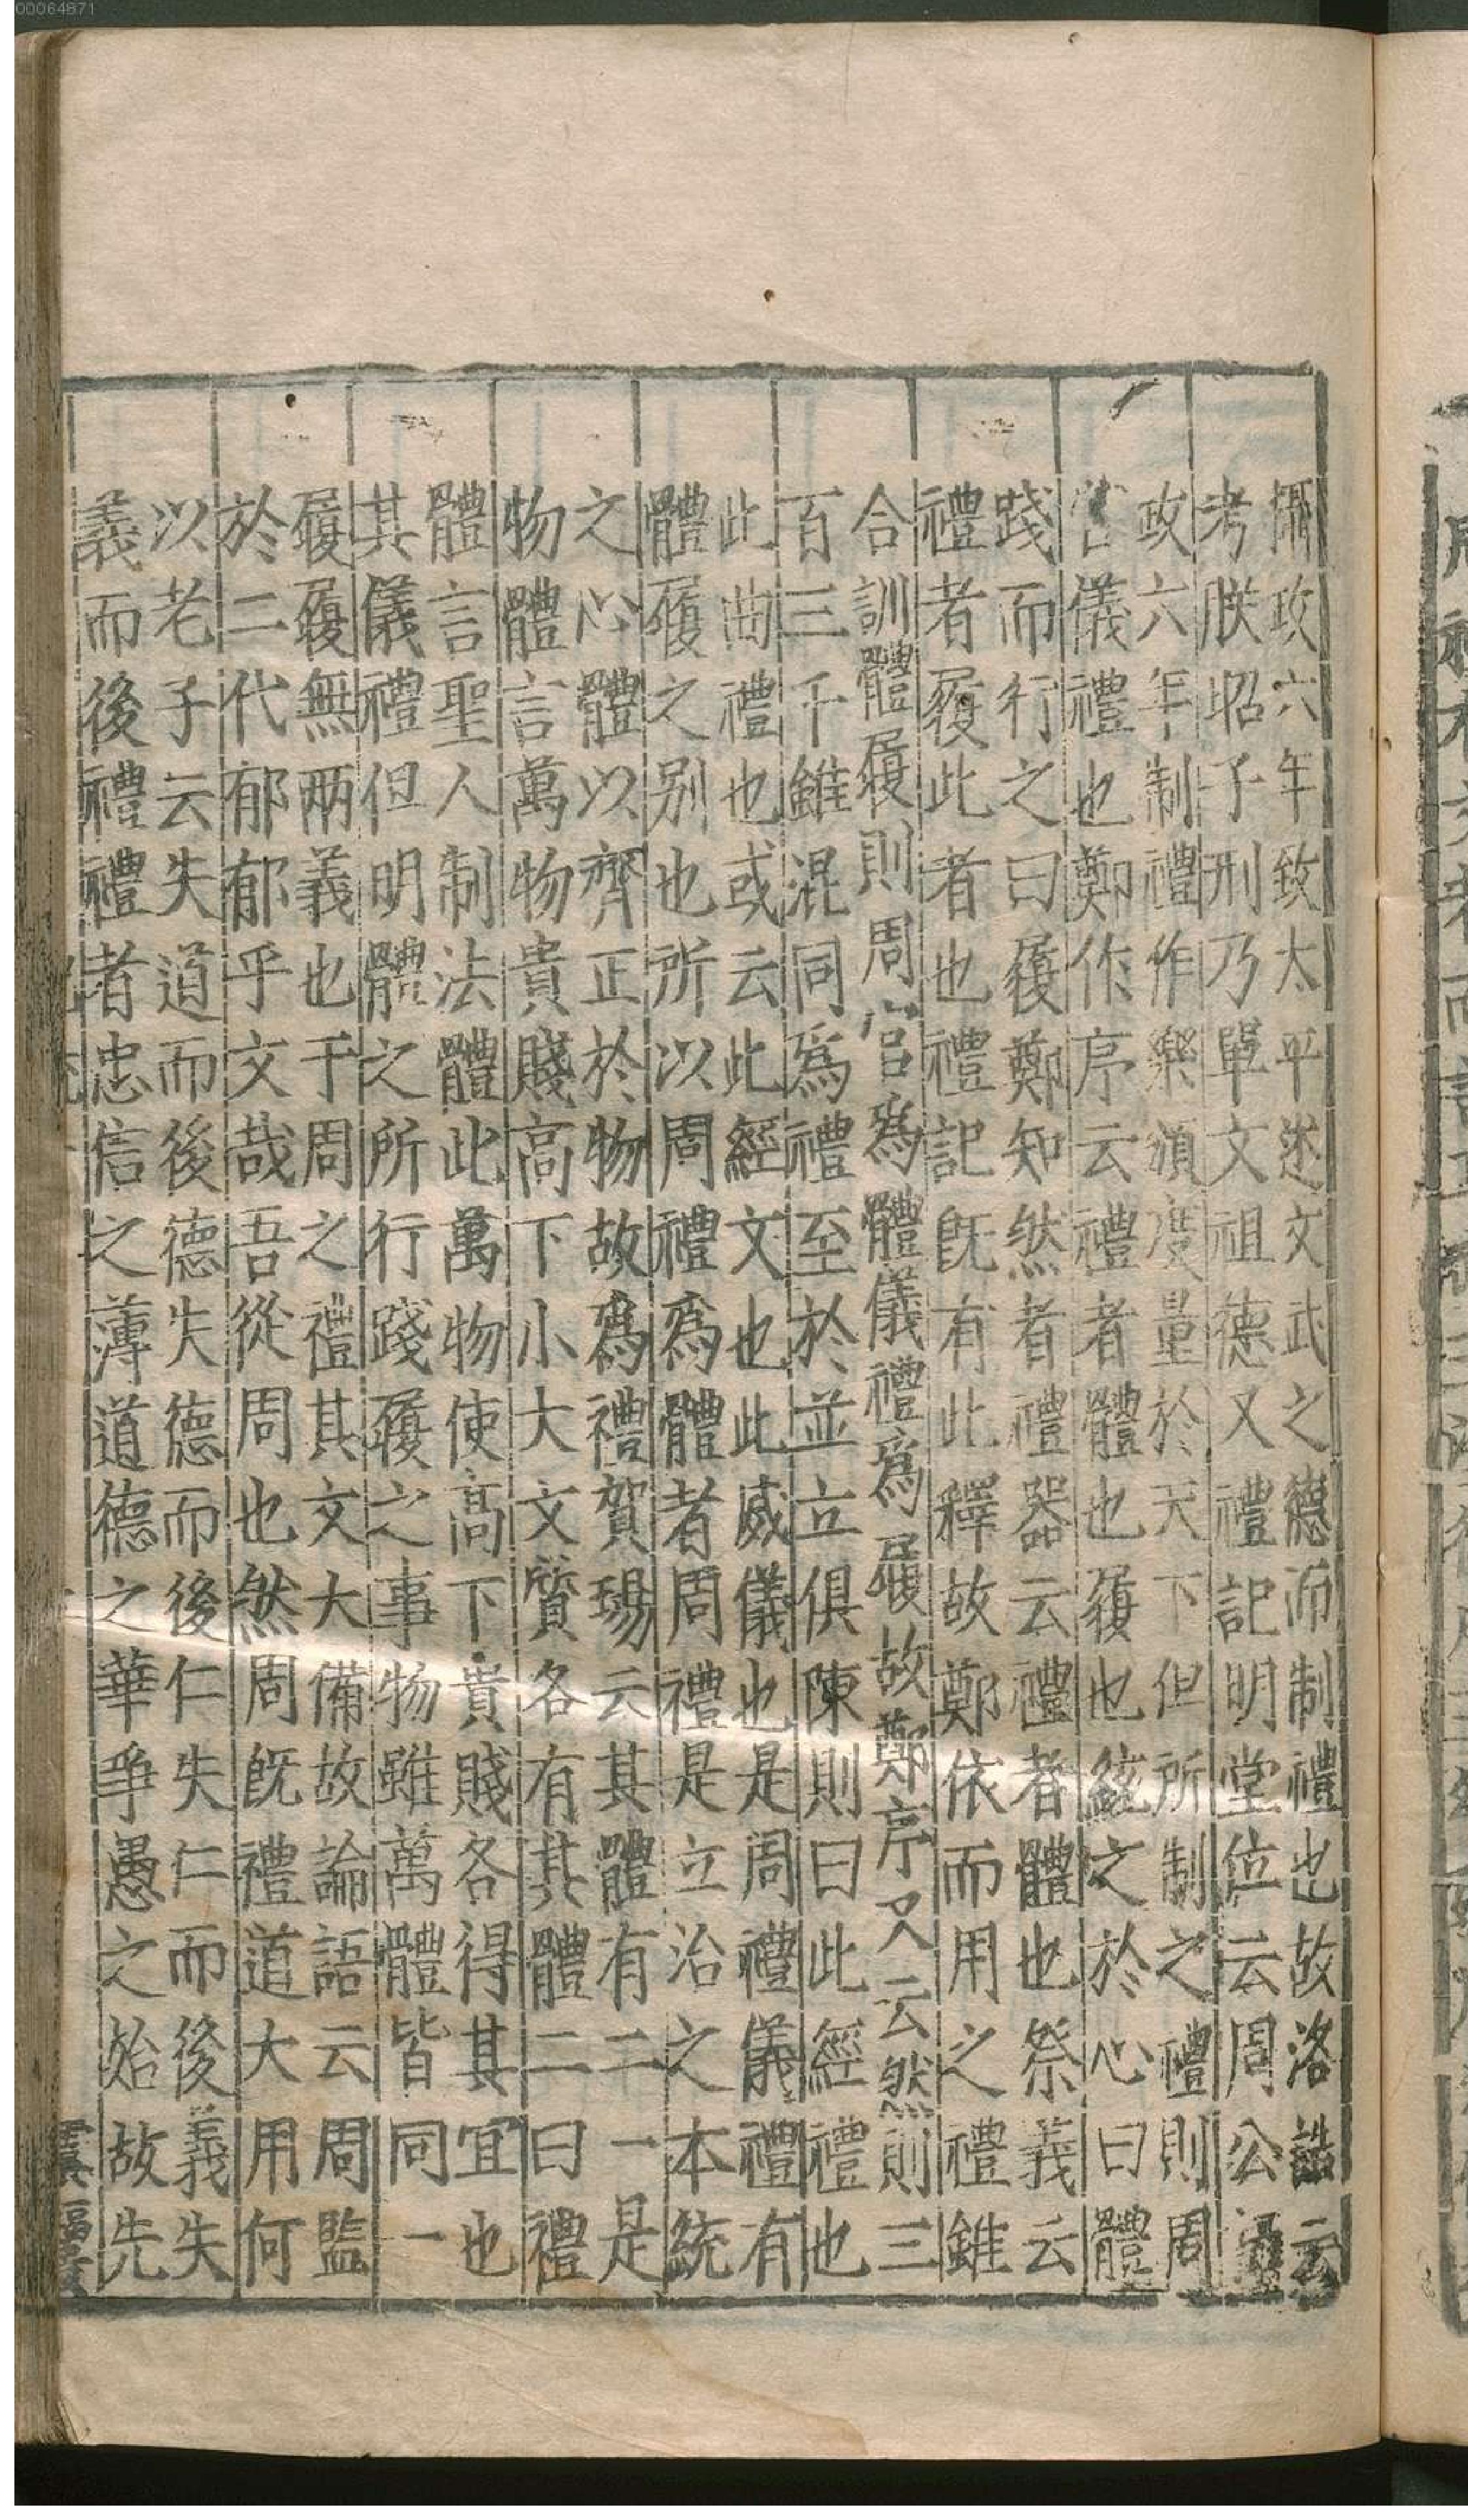 00064871
攝政六年致太平述文武之德而制禮也故洛誥云
考朕昭子刑乃單文祖德又禮記明堂位云周公攝
政六年制禮作樂頒度量於天下但所制之禮則周
官儀禮也鄭作序云禮者體也履也統之於心曰體
踐而行之曰履鄭知然者禮器云禮者體也祭義云
禮者履此者也禮記既有此釋故鄭依而用之禮雖
合訓體履則周官為體儀禮為履故鄭序又云然則三
百三千雖混同為禮至於並立俱陳則曰此經禮也
此曲禮也或云此經文也此威儀也是周禮儀禮有
體履之別也所以周禮為體者周禮是立治之本統
之心體以齊正於物故為禮賀瑒云其體有二一是
物體言萬物貴賤高下小大文質各有其體二曰禮
體言聖人制法體此萬物使高下貴賤各得其宜也
其儀禮但明體之所行踐履之事物雖萬體皆同一
履履無兩義也于周之禮其文大備故論語云周監
於二代郁郁乎文哉吾從周也然周既禮道大用何
以老子云失道而後德失德而後仁失仁而後義失
義而後禮禮者忠信之薄道德之華爭愚之始故先